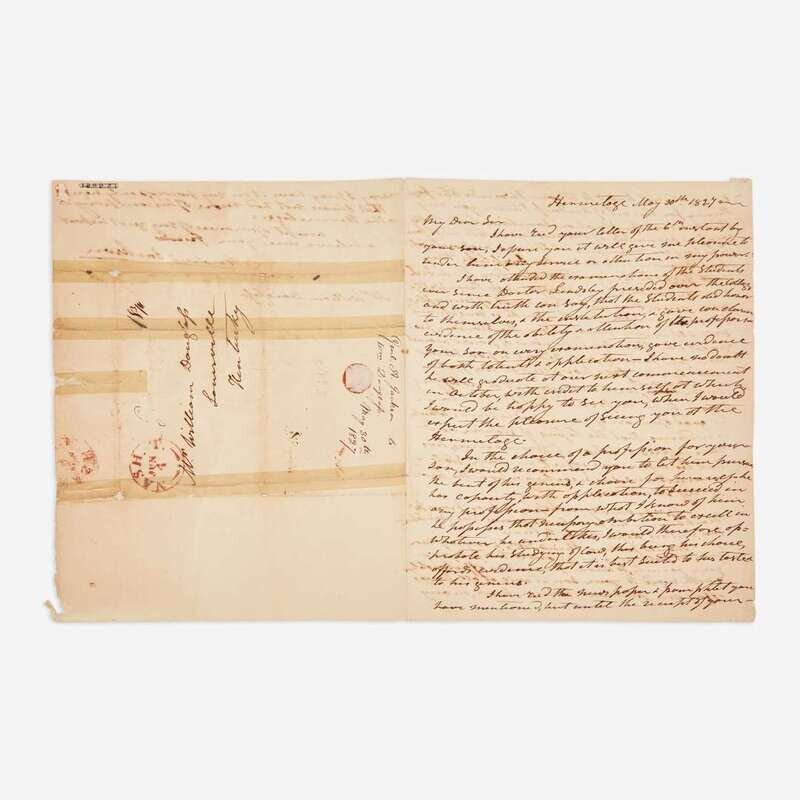 Hermitage May 30th 1827
My Dear Sir
I have recd your letter of the 6th instant by
your son, I assure you it will give me pleasure to
render him any service or attention in my power.
I have attended the examinations of the Students
ever since Doctor Lindsley presided over the College
and with truth can say, that the Students did honor
to themselves, & the institution, & gave conclusive
evidence of the ability & attention of the professors
Your son on every examination, gave evidence
of both talents & application - I have no doubt
he will graduate at our next commencement
in October, with credit to himself at when
I would be happy to see you, when I would
expect the pleasure of seeing you at the
Hermitage.
In the choice of a profession for your
son, I would recommend you to let him pursue
the bent of his genius, & choose for himself he
has capacity, with application, to succeed in
any profession from what I know of him
he possesses that ambition to excell in
whatever he undertakes, I would therefore ap-
probate his studying of law, this being his choice,
affords evidence, that it is best suited to his taste &
to his genius.
I have recd the news paper & pamphlet you
have mentioned, but until the receipt of your
18¾
Mr William Douglass
Louisville
Kentucky
Genl A Jackson to
Wm Douglass
May 30th
1827
NASH
JUN